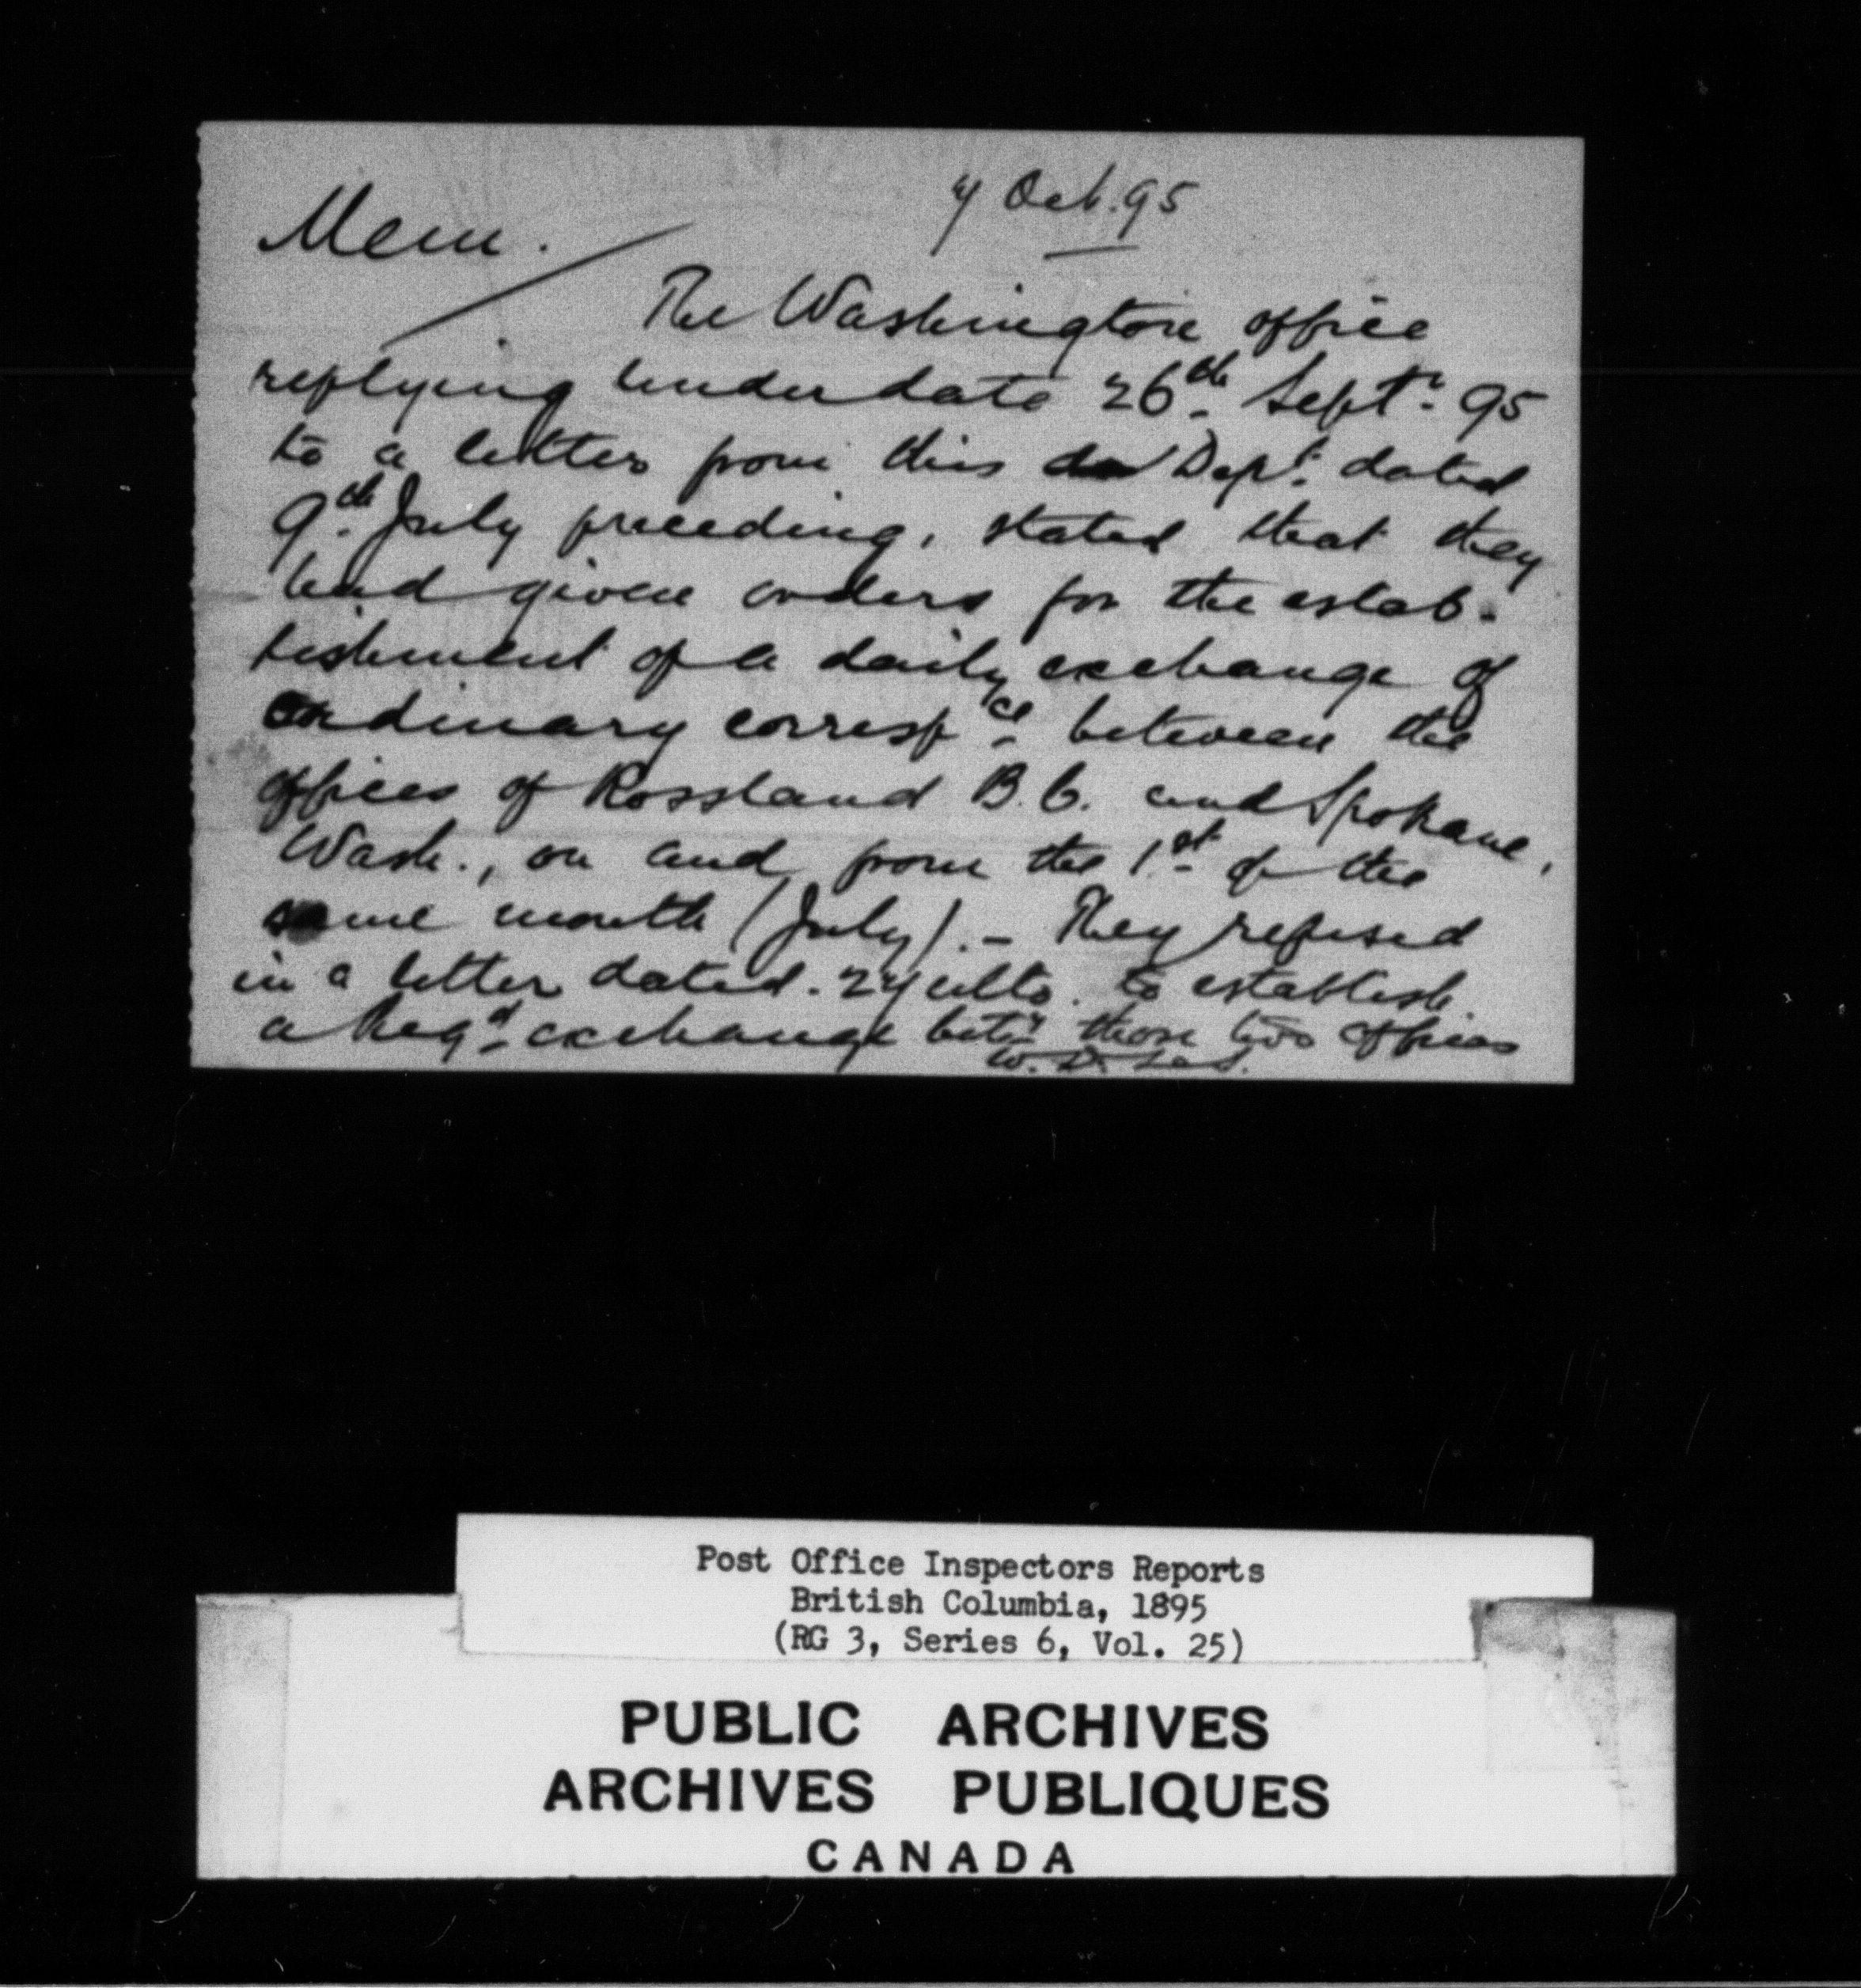 7 Oct. 95
Mem.
The Washington office
replying under date 26th Septr. 95
to a letter from this Dept. dated
9th July preceding, stated that they
had given orders for the estab-
lishment of a daily exchange of
ordinary correspce between the
offices of Rossland B.C. and Spokane,
Wash., on and from the 1st of the
same month (July). - They refused
in a letter dated. 27 ulto. to establish
a Regd exchange betn those two offices
Post Office Inspectors Reports
British Columbia, 1895
(RG 3, Series 6, Vol. 25)
PUBLIC ARCHIVES
ARCHIVES PUBLIQUES
CANADA